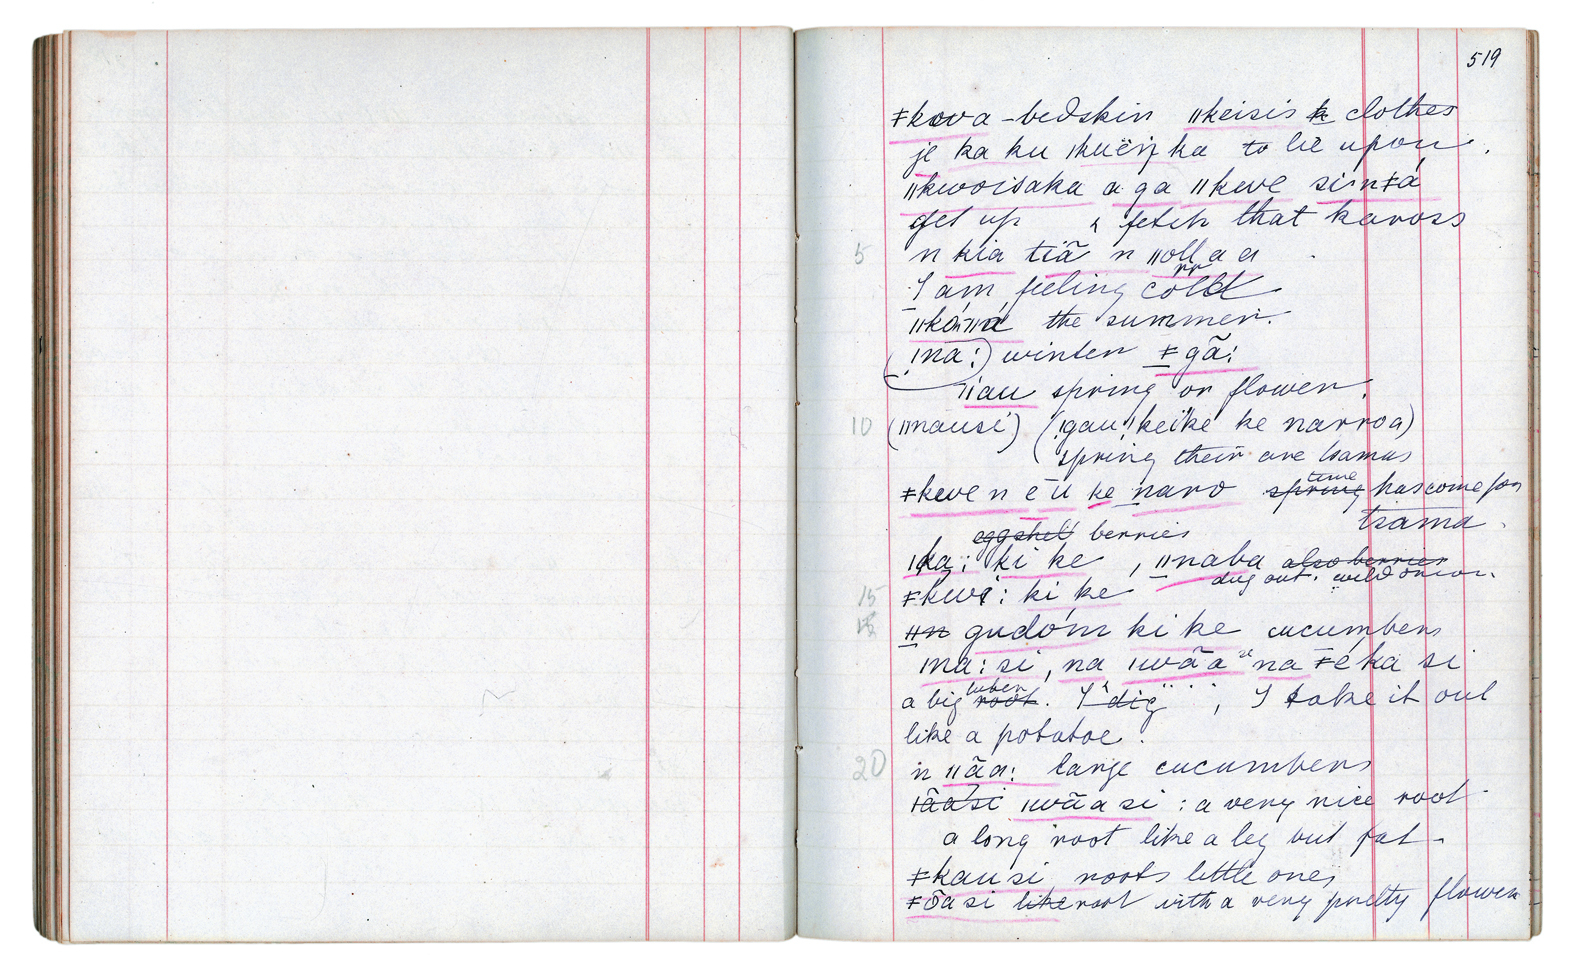 519
ǂkova - bedskin ǁkeisis k clothes
je ka ku ǀkuëiŋ ka to lie upon.
ǁkwoisaka a ga ǁkeve sinǂá
get up & fetch that kaross
5 n kia tiã n ǁolla a
I am feeling cold
the summer.
(ǃna:) winter ǂgã:
ǁau spring or flower.
10 (ǁnausi) (ǃgau ǁkeike ke narroa)
spring their are tsamas
ǂkeve n e u ke naro spring time has come for
tsama.
eggshel berries
ǀka: ki ke, ǁnaba also berries
dug out. wild onion.
15 ǂkwi: ki ke
15 ǁn gudóm ki ke cucumbers
ǀna: si, na ǀwãa si na ǂéka si
a big root tuber. I dig; I take it out
like a potatoe.
20 n ǁãa: large cucumbers
ǀãa si ǀwãa si: a very nice root
a long root like a leg but fat -
ǂkausi roots little ones
ǂõasi like root with a very pretty flower